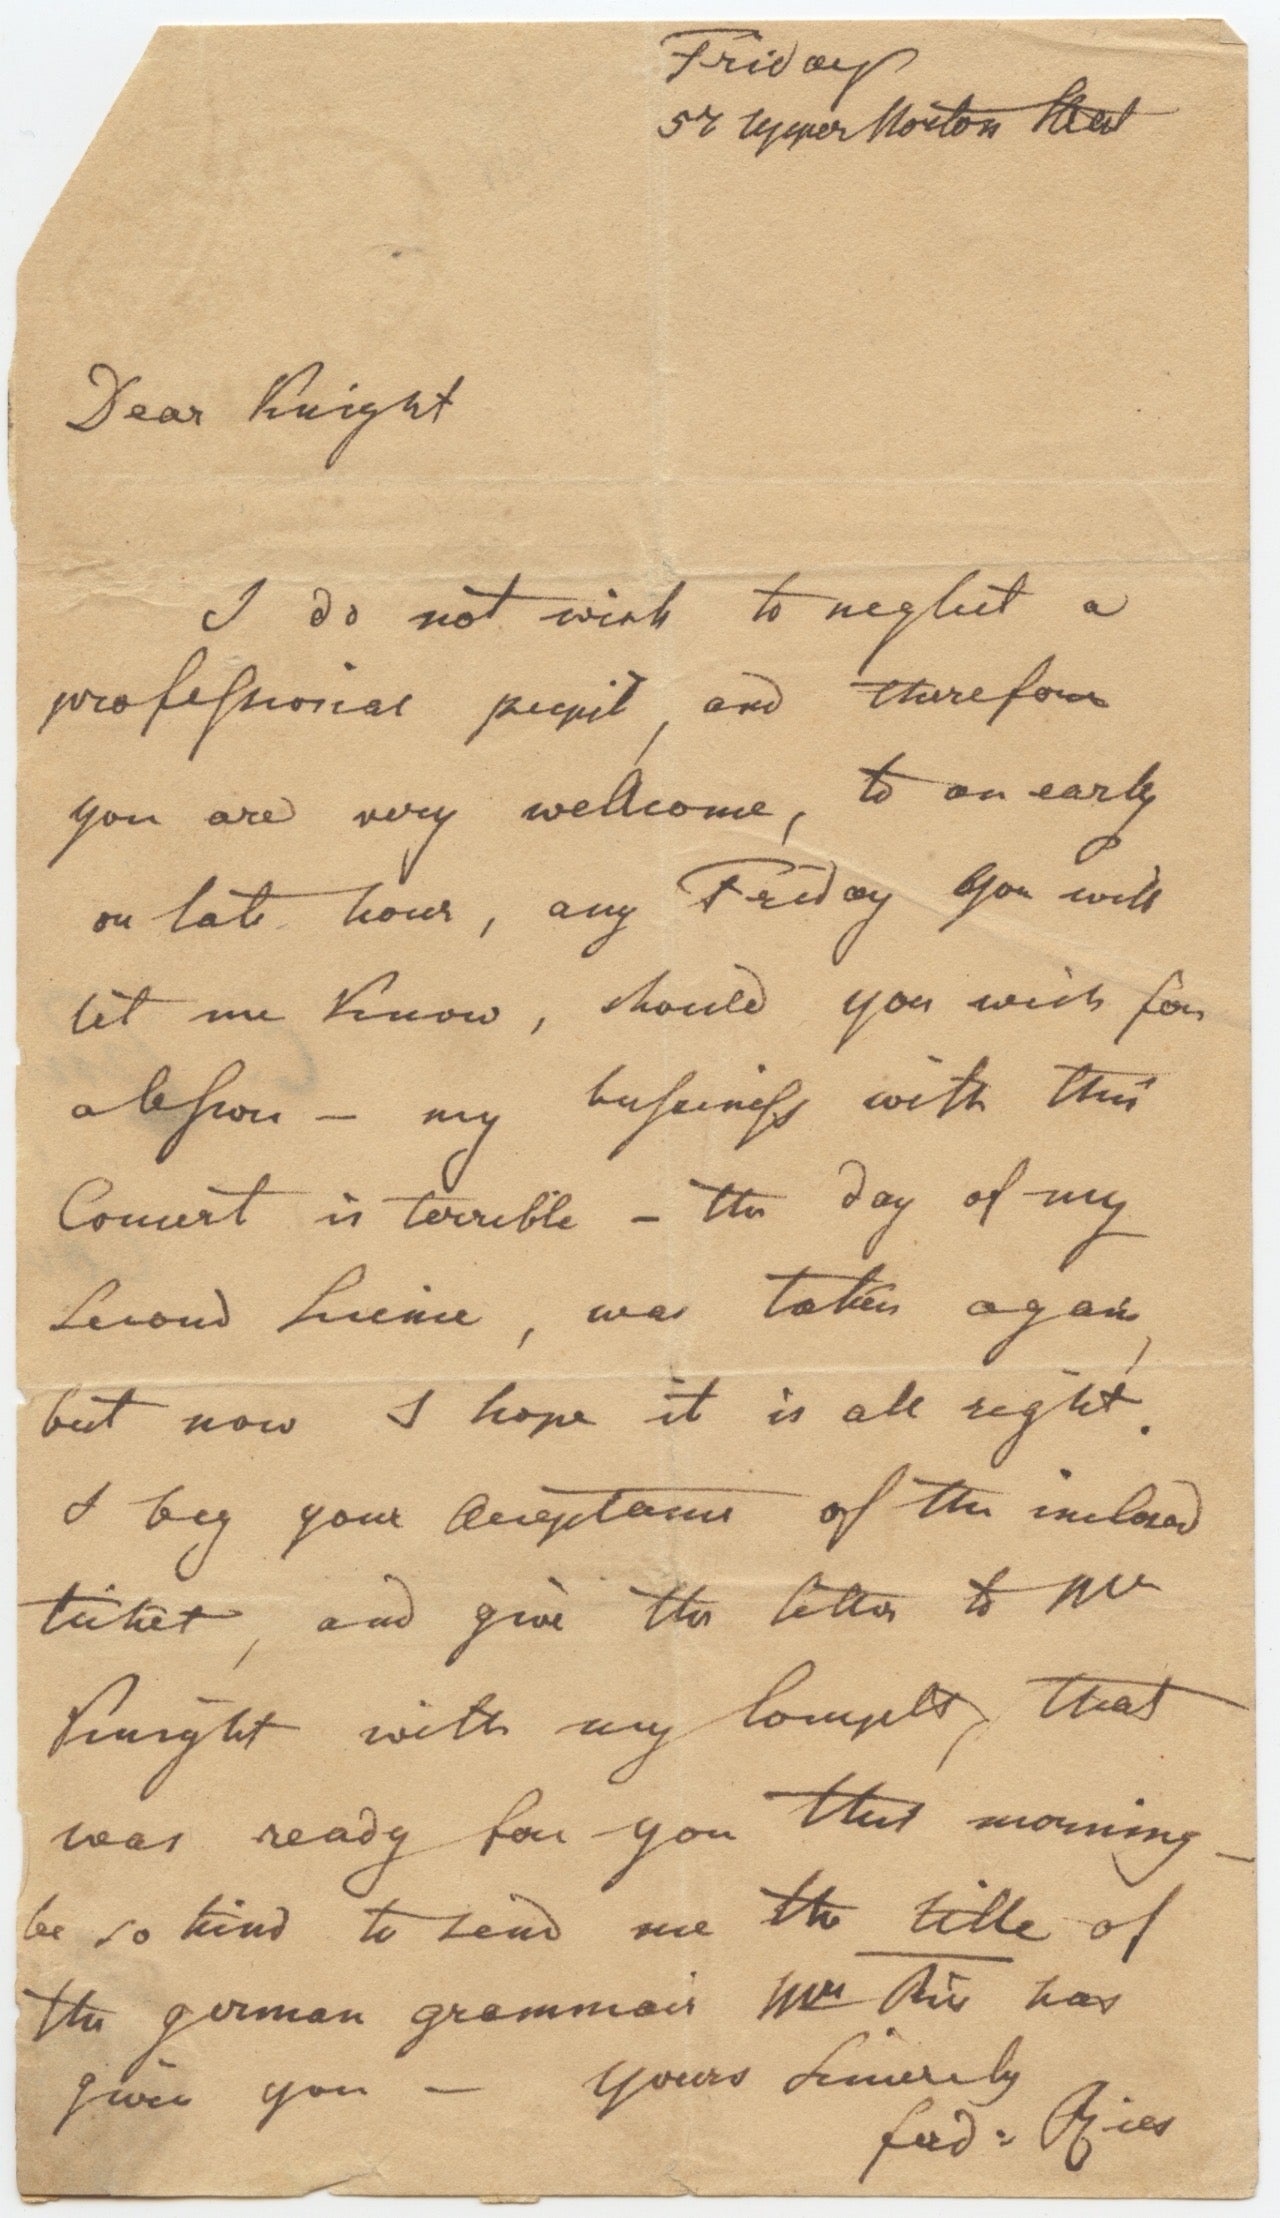 Friday
57 Upper Norton Street
Dear Knight
I do not wish to neglect a
professional pupil, and therefore
you are very wellcome, to an early
or late hour, any Friday you will
let me Know, should you wish for
a lesson – my bussiness with this
Concert is terrible – the day of my
Second Science, was taken again,
but now I hope it is all right.
I beg your acceptance of the inclosed
ticket, and give the letter to Mr
Knight with my Complts, that
was ready for you this morning –
be so kind to send me the title of
the german grammair Mrs Ries has
given you – yours sincerely
ferd: Ries